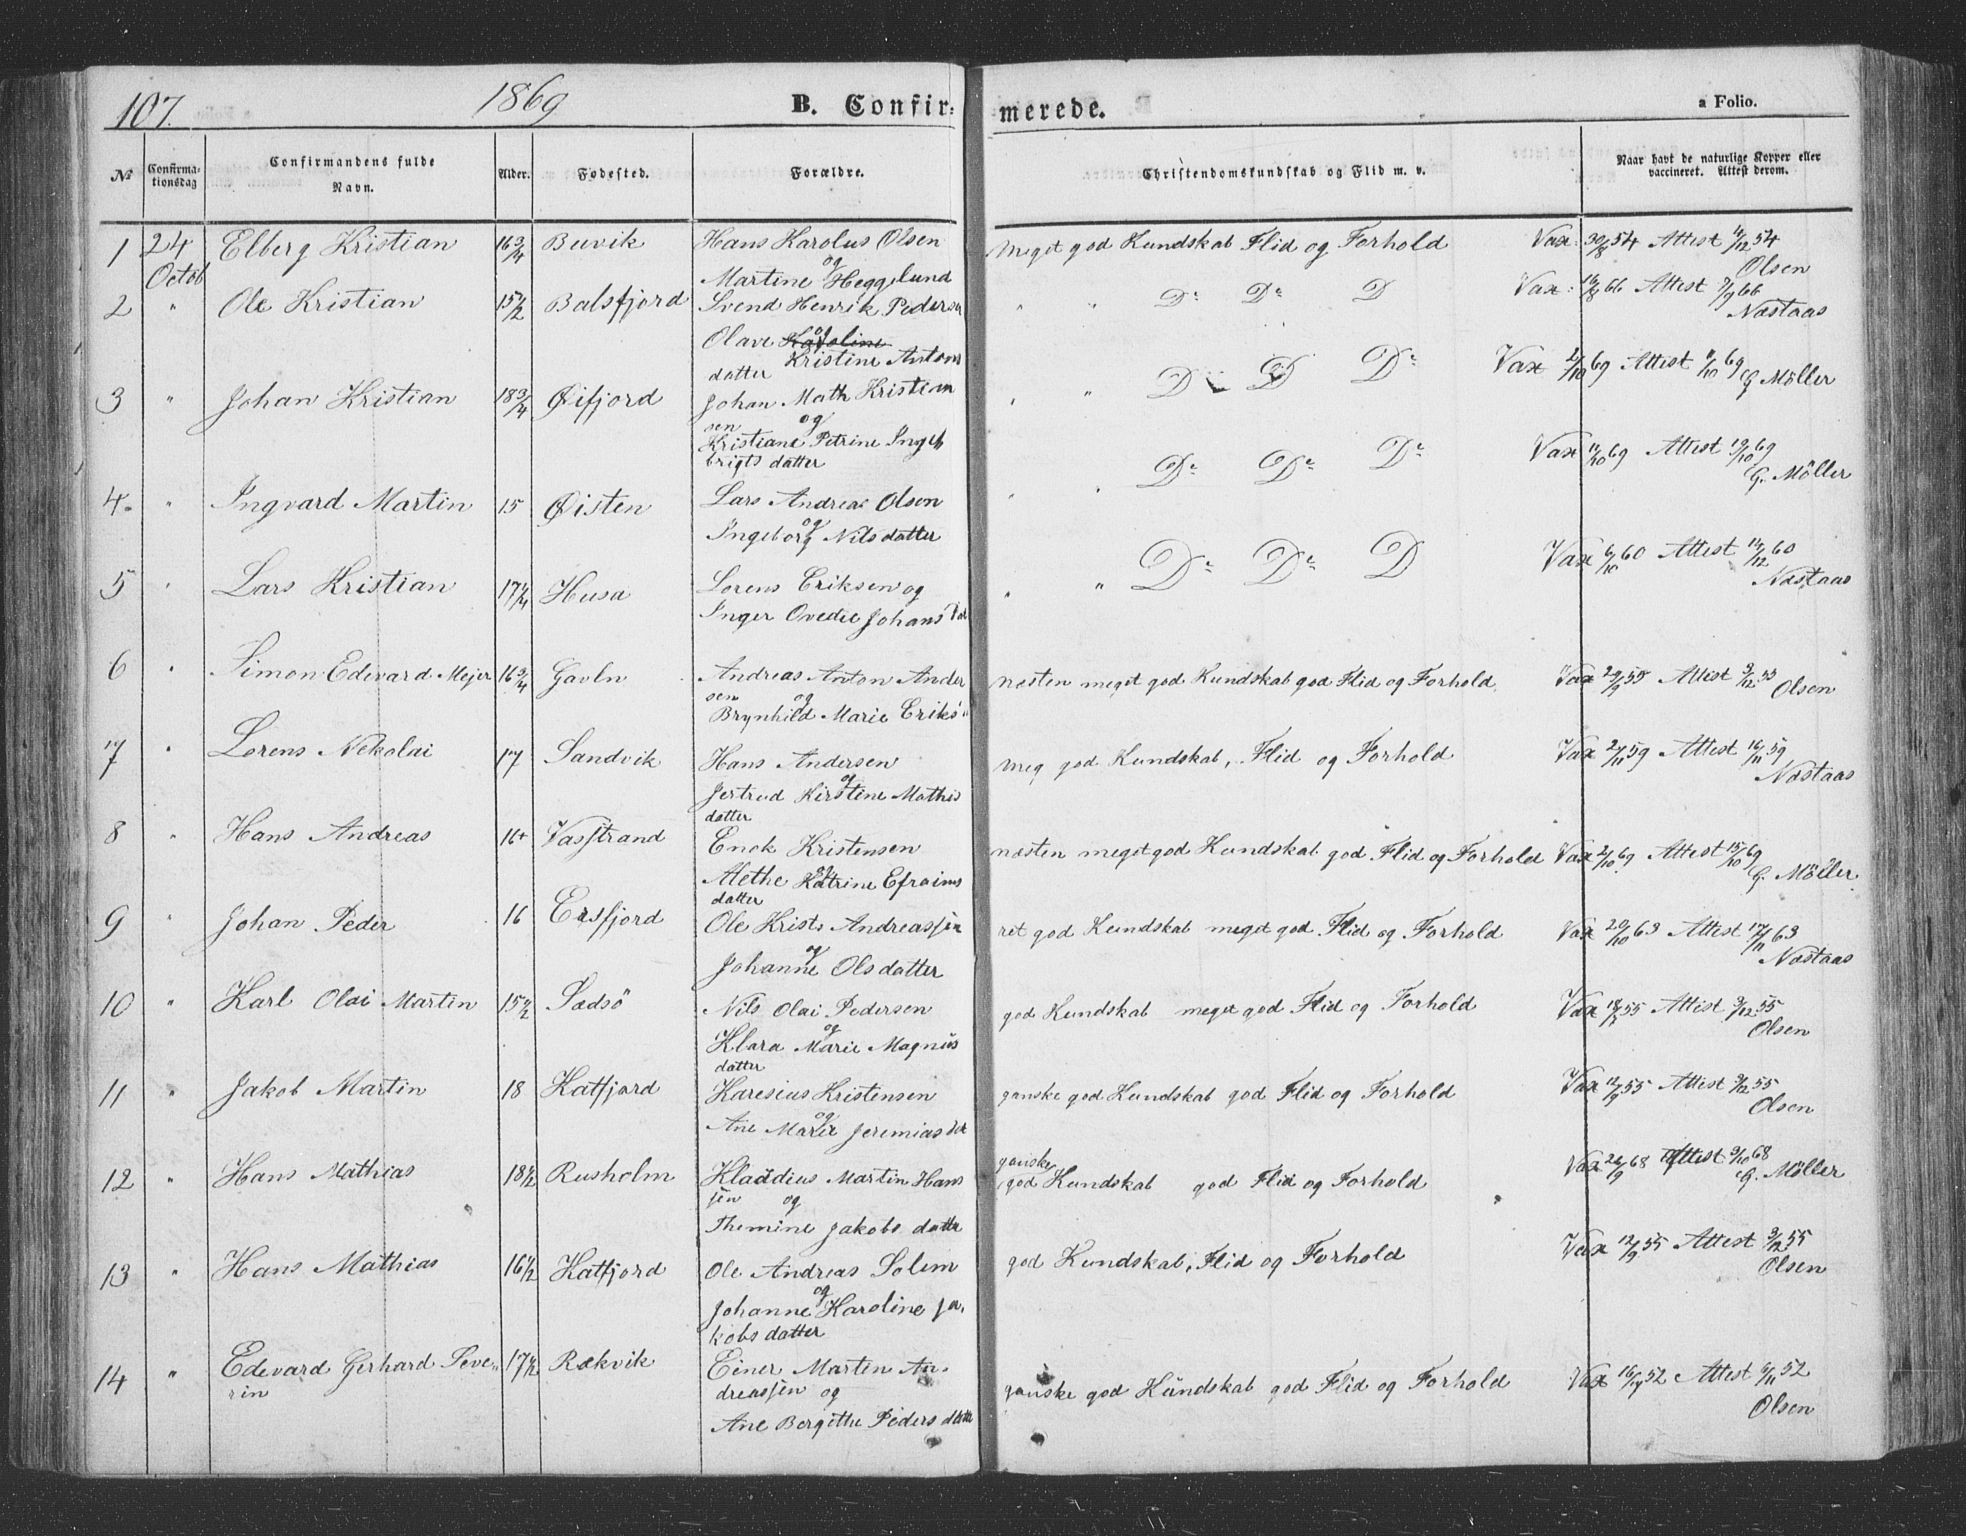 107. 1869 B. Confirmerede. a Folio.
№ Confirmationsdag Confirmandens fulde Navn. Alder. Fødested. Forældre. Christendomskundskab og Flid m. v. Naar havt de naturlige Kopper eller vaccineret. Attest derom.
1 24 Octob Elberg Kristian 16 3/4 Buvik Hans Karolus Olsen og Martine Heggelund Meget god Kundskab Flid og Forhold Vax: 30/8 54 Attest 14/12 54 Olsen
2 " Ole Kristian 15 1/2 Balsfjord Svend Henrik Pedersen
Olave og Kristine Antons
datter " " Do Do D Vax: 16/8 66 Attest 7/9 66 Næstaas
3 " Johan Kristian 18 3/4 Øifjord Johan Math Kristian
sen og
Kristiane Petrine Ingeb
brigts datter " " D D Do Vax 2/10 69 Attest 11/10 69 G. Möller
4. " Ingvard Martin 15 Øisten Lars Andreas Olsen
og
Ingeborg Nilsdatter " " Do Do Do Vax 11/10 69 Attest 19/10 69 G. Möller
5 " Lars Kristian 17 1/4 Husa Lorens Eriksen og
Inger Ovedie Johans " " Do Do D Vax 6/10 60 Attest 14/12 60 Næstaas
6 " Simon Edevard Mejer 16 3/4 Gavln Andreas Anton Ander
sen og
Brynhild Marie Eriks næsten meget god Kundskab god Flid og Forhold Vax 29/9 55 Attest 3/12 55 Olsen
7 " Lorens Nekolai 17 Sandvik Hans Andersen
og
Jertrud Kirstine Mathis
datter meg god Kundskab, Flid og Forhold Vax 2/11 59 Attest 16/11 59 Næstaas
8 " Hans Andreas 16+ Vasstrand Enok Kristensen
og
Methe Katrine Efraims
datter næsten meget god Kundskab god Flid og Forhold Vax 2/10 69 Attest 15/10 69 G. Möller
9 " Johan Peder 16 Ersfjord Ole Krists Andreassen
og
Johanne Olsdatter ret god Kundskab meget god Flid og Forhold Vax 20/10 63 Attest 17/11 63 Næstaas
10 " Karl Olai Martin 15 1/2 Sadsö Nils Olai Pedersen
og
Klara Marie Magnus
datter god Kundskab meget god Flid og Forhold Vax 55 Attest 3/12 55 Olsen
11 " Jakob Martin 18 Katfjord Karesius Kristensen
og
Ane Marie Jeremias der ganske god Kundskab god Flid og Forhold Vax 12/9 55 Attest 3/12 55 Olsen
12 " Hans Mathias 18 1/2 Rusholm Kladdius Martin Hans
sen og
Themine Jakobs datter ganske god Kundskab god Flid og Forhold Vax 26/9 68 Attest 9/10 68 G. Möller
13 " Hans Mathias 16 1/2 Katfjord Ole Andreas Solem
og
Johanne Karoline Ja,
kobs datter god Kundskab, Flid og Forhold Vax 12/9 55 Attest 3/12 55 Olsen
14 " Edevard Gerhard Seve„
rin 17 1/2 Rækvik Einer Martin An,
dreassen og
Ane Bergithe Peders datter ganske god Kundskab god Flid og Forhold Vax 52 Attest 6/11 52 Olsen